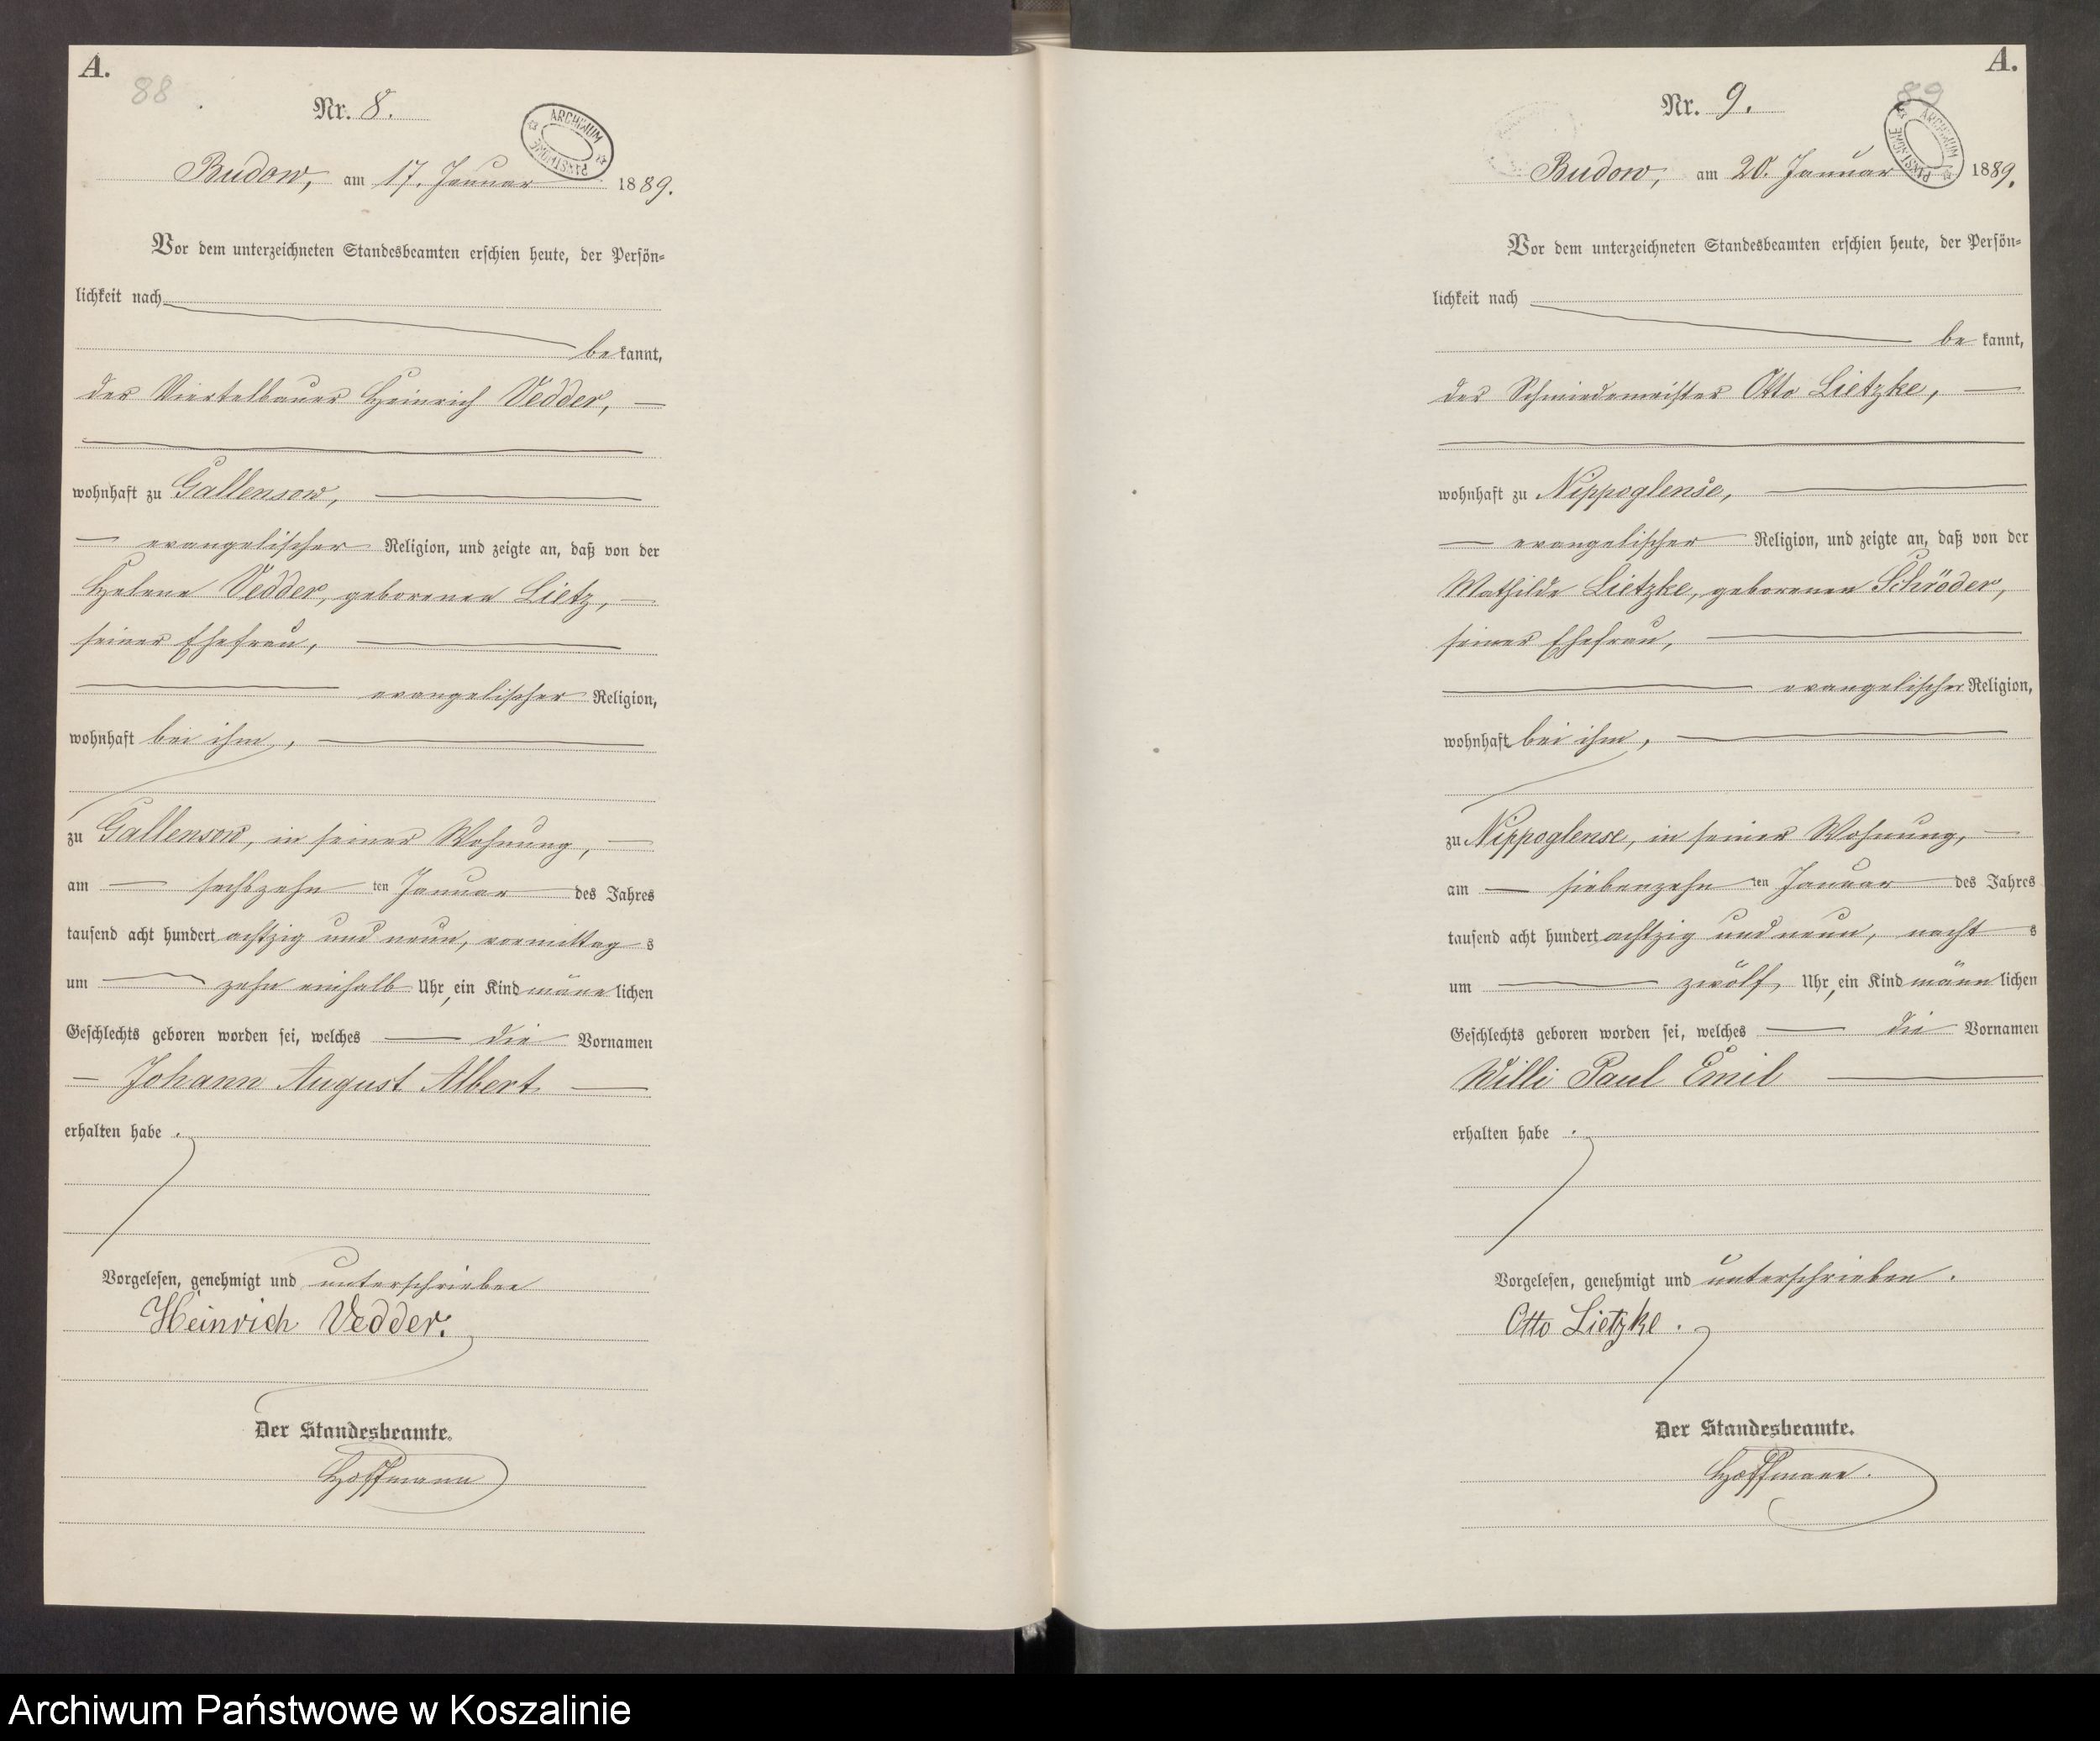 A.
88
Nr. 8.
ARCHIWUM PAŃSTWOWE
Budow, am 17. Januar 1889.
Vor dem unterzeichneten Standesbeamten erschien heute, der Persön=
lichkeit nach
bekannt,
der Viertelbauer Heinrich Vedder,
wohnhaft zu Gallensow,
evangelischer Religion, und zeigte an, daß von der
Helene Vedder, geborenen Lietz,
seiner Ehefrau,
evangelischer Religion,
wohnhaft bei ihm,
zu Gallensow, in seiner Wohnung,
am sechszehn ten Januar des Jahres
tausend acht hundert achtzig und neun, vormittags
um zehn einhalb Uhr, ein Kind männlichen
Geschlechts geboren worden sei, welches die Vornamen
Johann August Albert
erhalten habe.
Vorgelesen, genehmigt und unterschrieben
Heinrich Vedder.
Der Standesbeamte.
Hoffmann
A.
89
Nr. 9.
ARCHIWUM PAŃSTWOWE
Budow, am 20. Januar 1889.
Vor dem unterzeichneten Standesbeamten erschien heute, der Persön=
lichkeit nach
bekannt,
der Schmiedemeister Otto Lietzke,
wohnhaft zu Nippoglense,
evangelischer Religion, und zeigte an, daß von der
Mathilde Lietzke, geborenen Schröder,
seiner Ehefrau,
evangelischer Religion,
wohnhaft bei ihm,
zu Nippoglense, in seiner Wohnung,
am siebenzehn ten Januar des Jahres
tausend acht hundert achtzig und neun, nachts
um zwölf Uhr, ein Kind männlichen
Geschlechts geboren worden sei, welches die Vornamen
Willi Paul Emil
erhalten habe.
Vorgelesen, genehmigt und unterschrieben.
Otto Lietzke.
Der Standesbeamte.
Hoffmann.
Archiwum Państwowe w Koszalinie